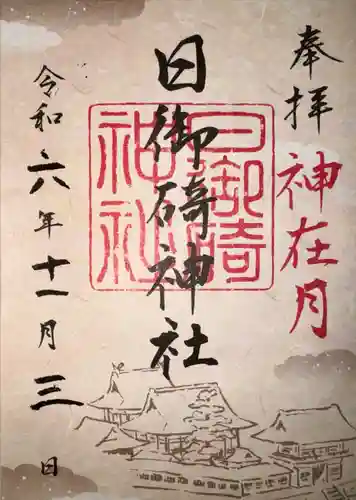 奉拝
神在月
日御碕神社
日御碕神社
令和六年十一月三日